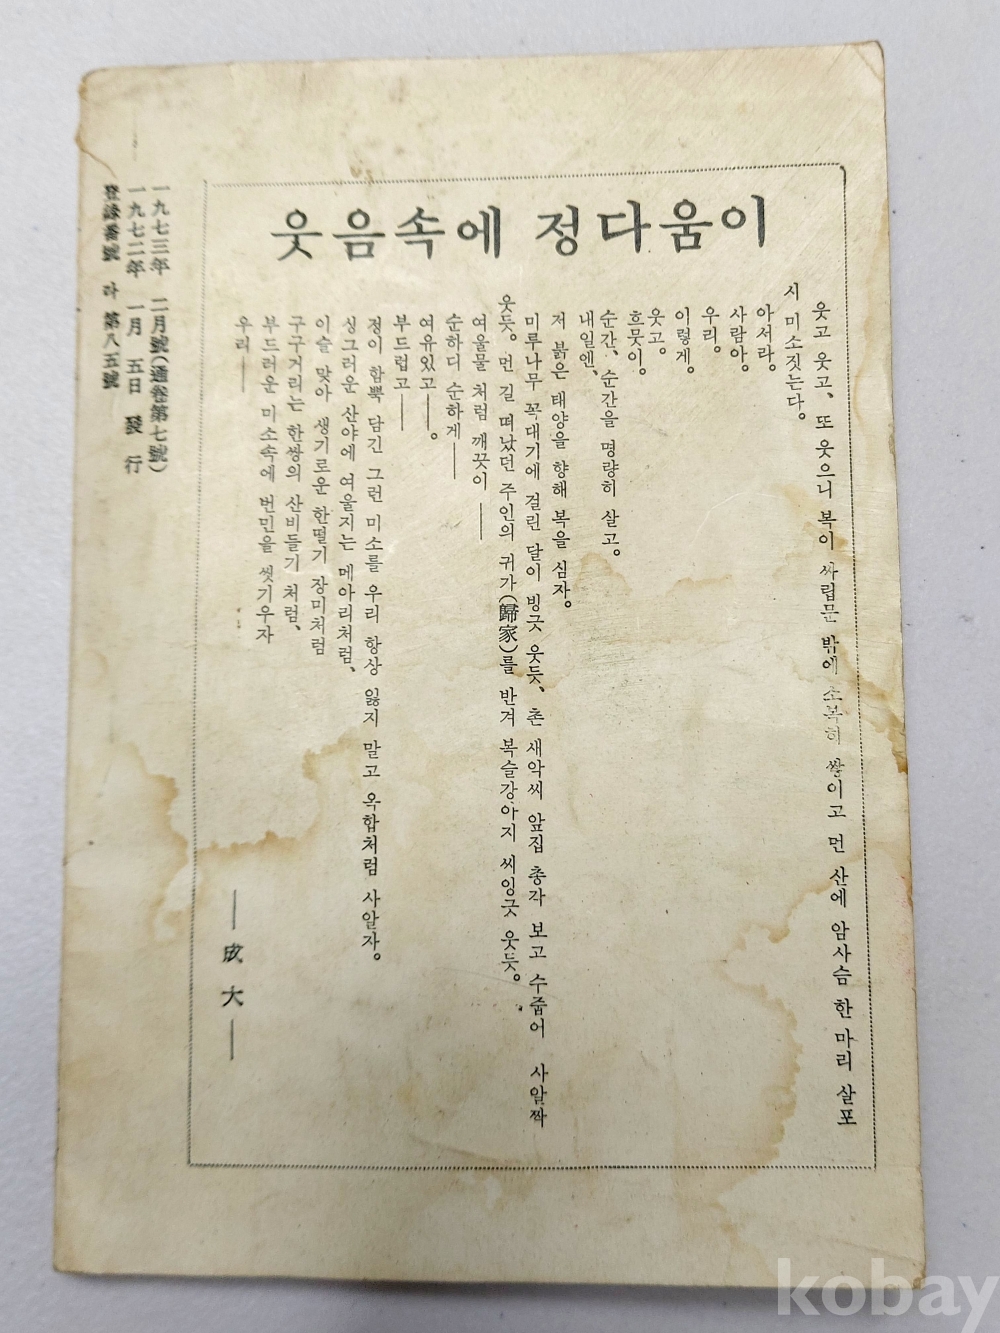 웃음속에 정다움이
웃고 웃고、 또 웃으니 복이 싸립문 밖에 소복히 쌓이고 먼 산에 암사슴 한 마리 살포
시 미소짓는다。
아서라。
사람아。
우리。
이렇게。
웃고。
흐뭇이。
순간、 순간을 명량히 살고。
내일엔、
저 붉은 태양을 향해 복을 심자。
미루나무 꼭대기에 걸린 달이 빙긋 웃듯、 촌 새악씨 앞집 총각 보고 수줍어 사알짝
웃듯。 먼 길 떠났던 주인의 귀가(歸家)를 반겨 복슬강아지 씨잉긋 웃듯。
여울물 처럼 깨끗이 ——
순하디 순하게——
여유있고——。
부드럽고——
정이 함뿍 담긴 그런 미소를 우리 항상 잃지 말고 옥합처럼 사알자。
싱그러운 산야에 여울지는 메아리처럼、
이슬 맞아 생기로운 한떨기 장미처럼
구구거리는 한쌍의 산비들기 처럼、
부드러운 미소속에 번민을 씻기우자
우리——
—成大—
一九七三年 二月號(通卷第七號)
一九七二年 一月 五日 發行
登錄番號 라 第八五號
kobay